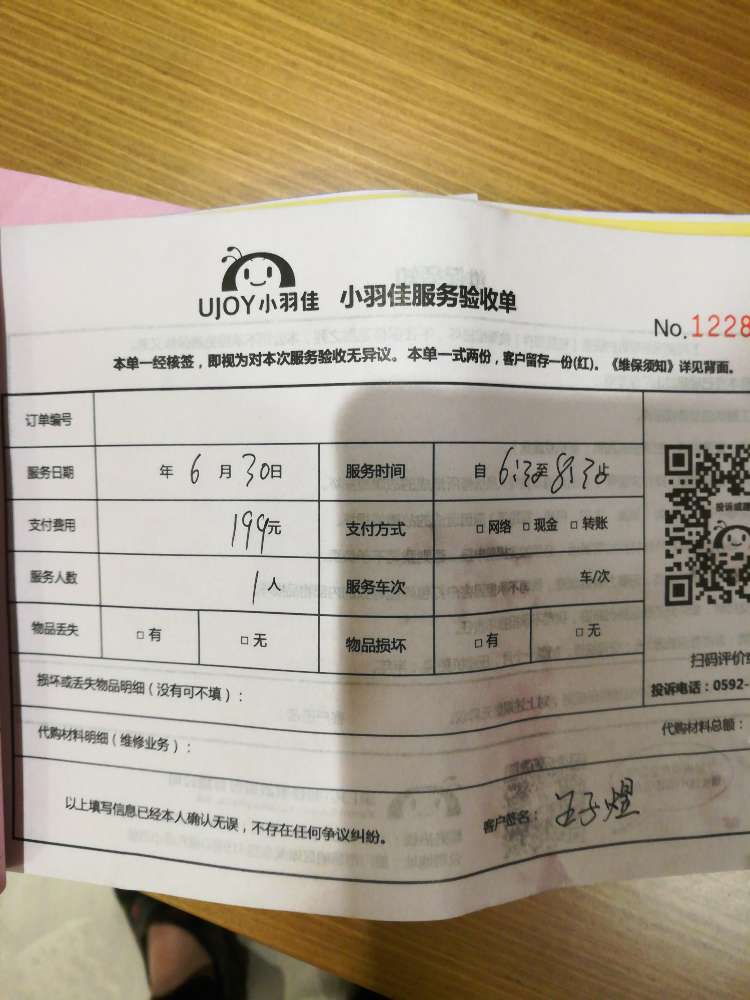 UJOY小羽佳 小羽佳服务验收单
No.1228
本单一经核签，即视为对本次服务验收无异议。本单一式两份，客户留存一份(红)。《维保须知》详见背面。
订单编号
服务日期 年 6 月 30日 服务时间 自 6:30至8:30止
支付费用 199元 支付方式 □网络 □现金 □转账
服务人数 1人 服务车次 车/次
物品丢失 □有 □无 物品损坏 □有 □无
投诉或建
扫码评价
投诉电话：0592-
损坏或丢失物品明细（没有可不填）：
代购材料明细（维修业务）： 代购材料总额：
以上填写信息已经本人确认无误，不存在任何争议纠纷。 客户签名：王子煜